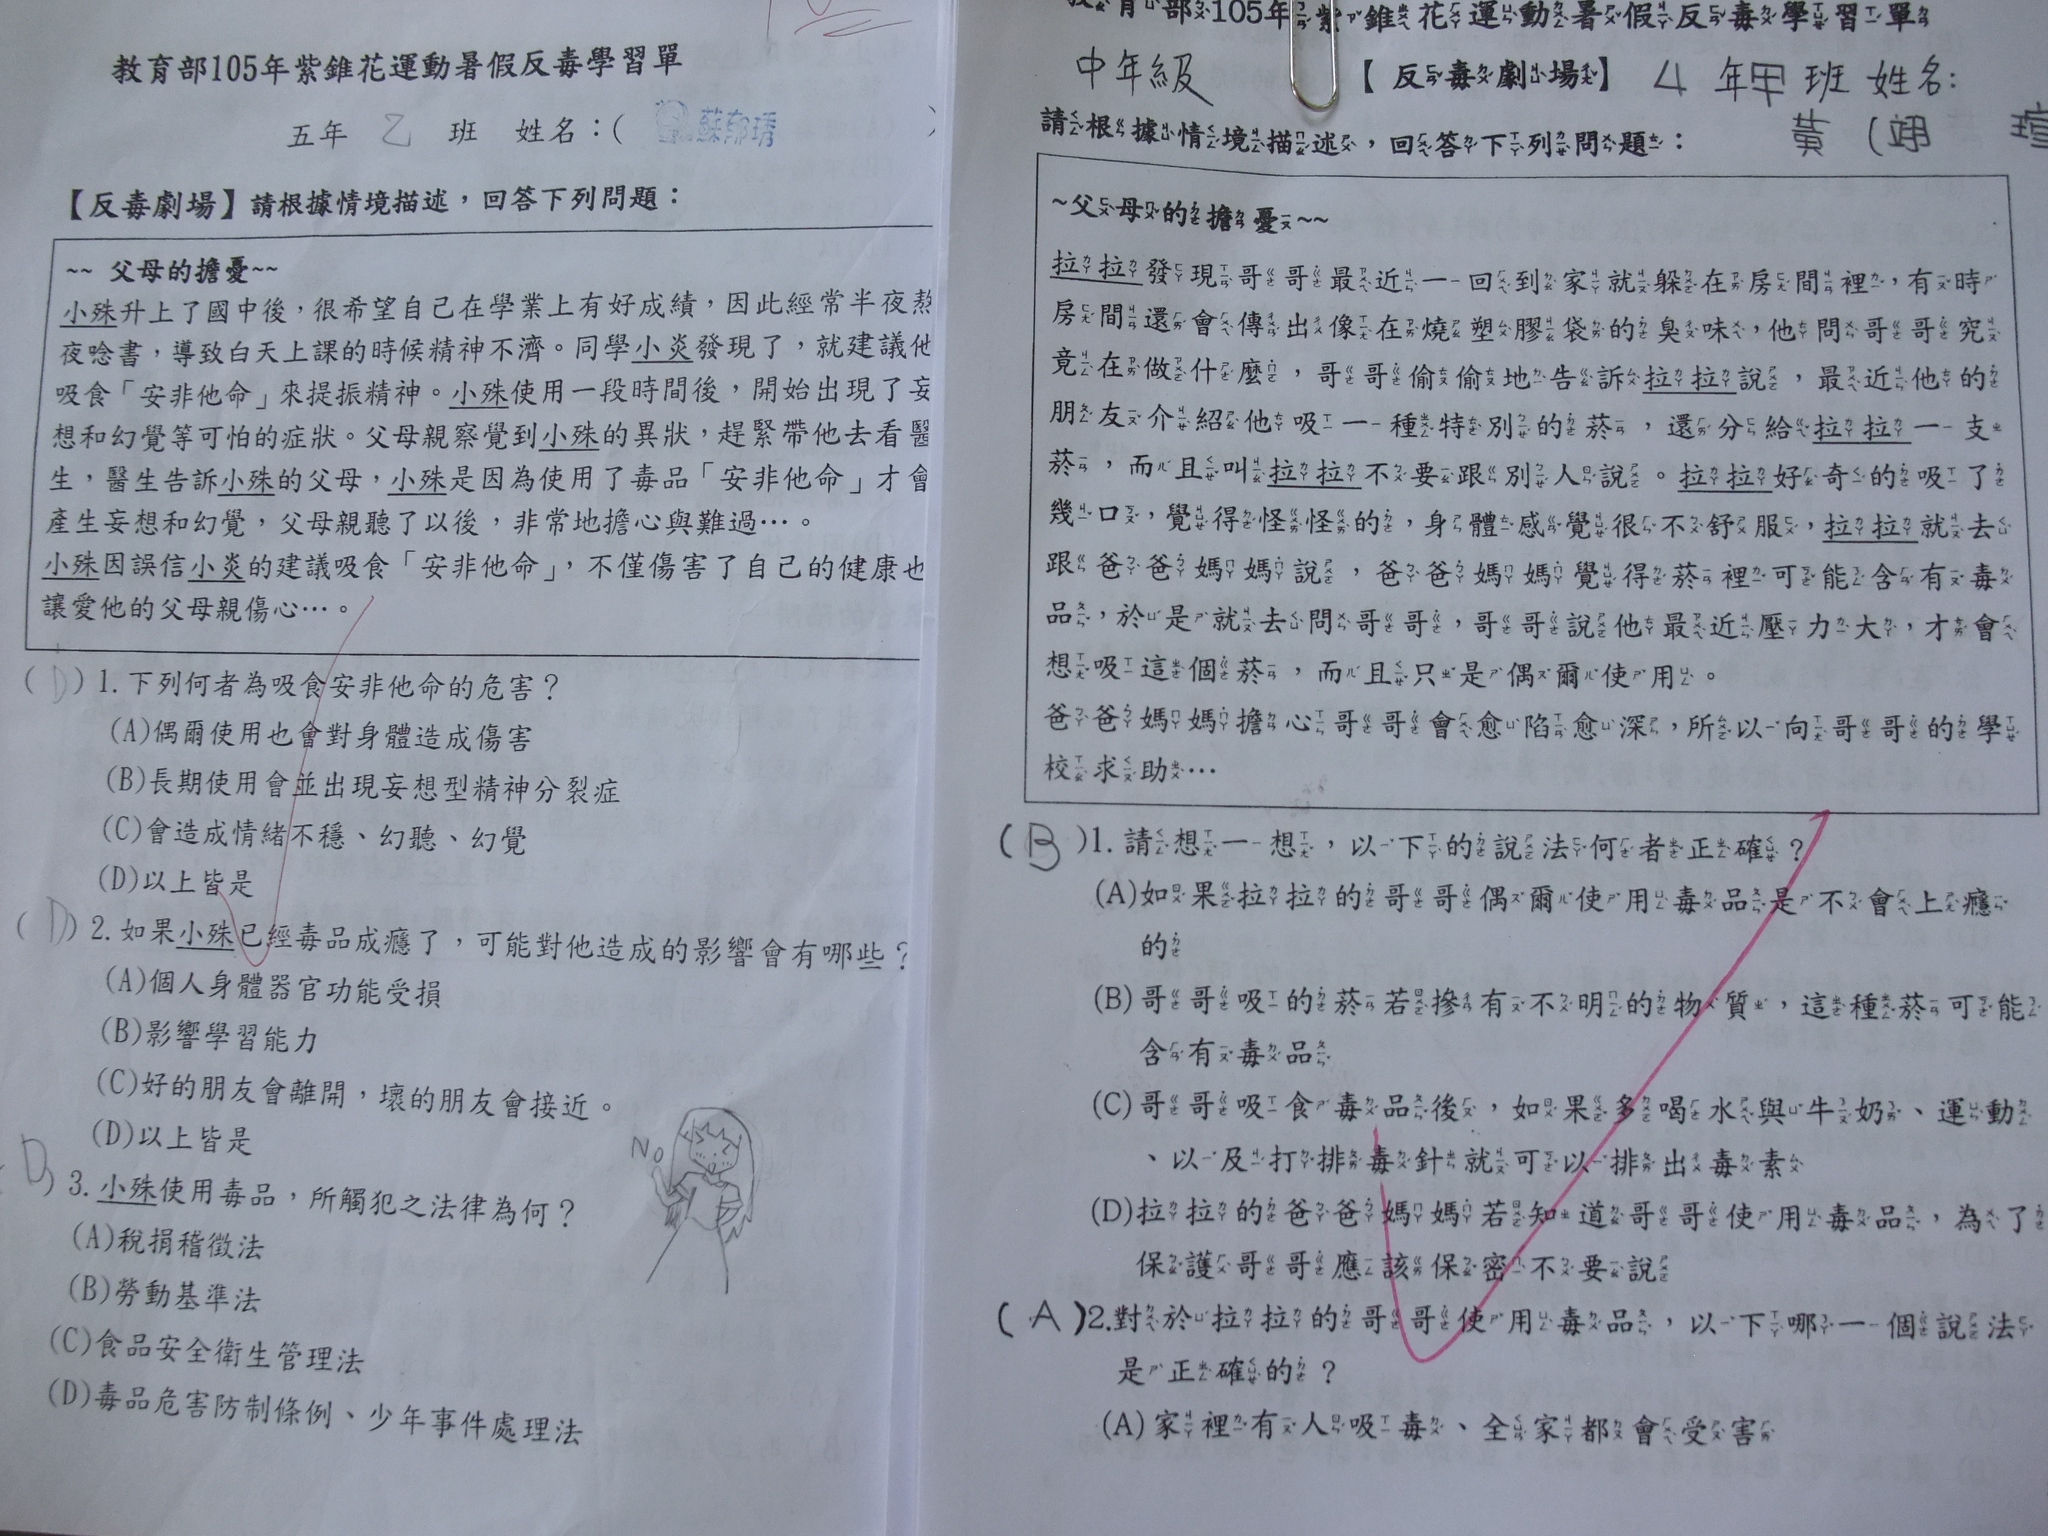 教育部105年紫錐花運動暑假反毒學習單
五年 乙 班 姓名：( 蘇郁琇 )
【反毒劇場】請根據情境描述，回答下列問題：
~~ 父母的擔憂~~
小殊升上了國中後，很希望自己在學業上有好成績，因此經常半夜熬
夜唸書，導致白天上課的時候精神不濟。同學小炎發現了，就建議他
吸食「安非他命」來提振精神。小殊使用一段時間後，開始出現了妄
想和幻覺等可怕的症狀。父母親察覺到小殊的異狀，趕緊帶他去看醫
生，醫生告訴小殊的父母，小殊是因為使用了毒品「安非他命」才會
產生妄想和幻覺，父母親聽了以後，非常地擔心與難過…。
小殊因誤信小炎的建議吸食「安非他命」，不僅傷害了自己的健康也
讓愛他的父母親傷心…。
( D ) 1. 下列何者為吸食安非他命的危害？
(A)偶爾使用也會對身體造成傷害
(B)長期使用會並出現妄想型精神分裂症
(C)會造成情緒不穩、幻聽、幻覺
(D)以上皆是
( D ) 2. 如果小殊已經毒品成癮了，可能對他造成的影響會有哪些？
(A)個人身體器官功能受損
(B)影響學習能力
(C)好的朋友會離開，壞的朋友會接近。
(D)以上皆是
No
D ) 3. 小殊使用毒品，所觸犯之法律為何？
(A)稅捐稽徵法
(B)勞動基準法
(C)食品安全衛生管理法
(D)毒品危害防制條例、少年事件處理法
教育部105年紫錐花運動暑假反毒學習單
中年級 【反毒劇場】 4 年甲 班 姓名:
請根據情境描述，回答下列問題： 黃(翊 瑄
~父母的擔憂~~
拉拉發現哥哥最近一回到家就躲在房間裡，有時
房間還會傳出像在燒塑膠袋的臭味，他問哥哥究
竟在做什麼，哥哥偷偷地告訴拉拉說，最近他的
朋友介紹他吸一種特別的菸，還分給拉拉一支
菸，而且叫拉拉不要跟別人說。拉拉好奇的吸了
幾口，覺得怪怪的，身體感覺很不舒服，拉拉就去
跟爸爸媽媽說，爸爸媽媽覺得菸裡可能含有毒
品，於是就去問哥哥，哥哥說他最近壓力大，才會
想吸這個菸，而且只是偶爾使用。
爸爸媽媽擔心哥哥會愈陷愈深，所以向哥哥的學
校求助…
( B )1. 請想一想，以下的說法何者正確？
(A)如果拉拉的哥哥偶爾使用毒品是不會上癮
的
(B)哥哥吸的菸若摻有不明的物質，這種菸可能
含有毒品
(C)哥哥吸食毒品後，如果多喝水與牛奶、運動
、以及打排毒針就可以排出毒素
(D)拉拉的爸爸媽媽若知道哥哥使用毒品，為了
保護哥哥應該保密不要說
( A )2.對於拉拉的哥哥使用毒品，以下哪一個說法
是正確的？
(A)家裡有人吸毒、全家都會受害